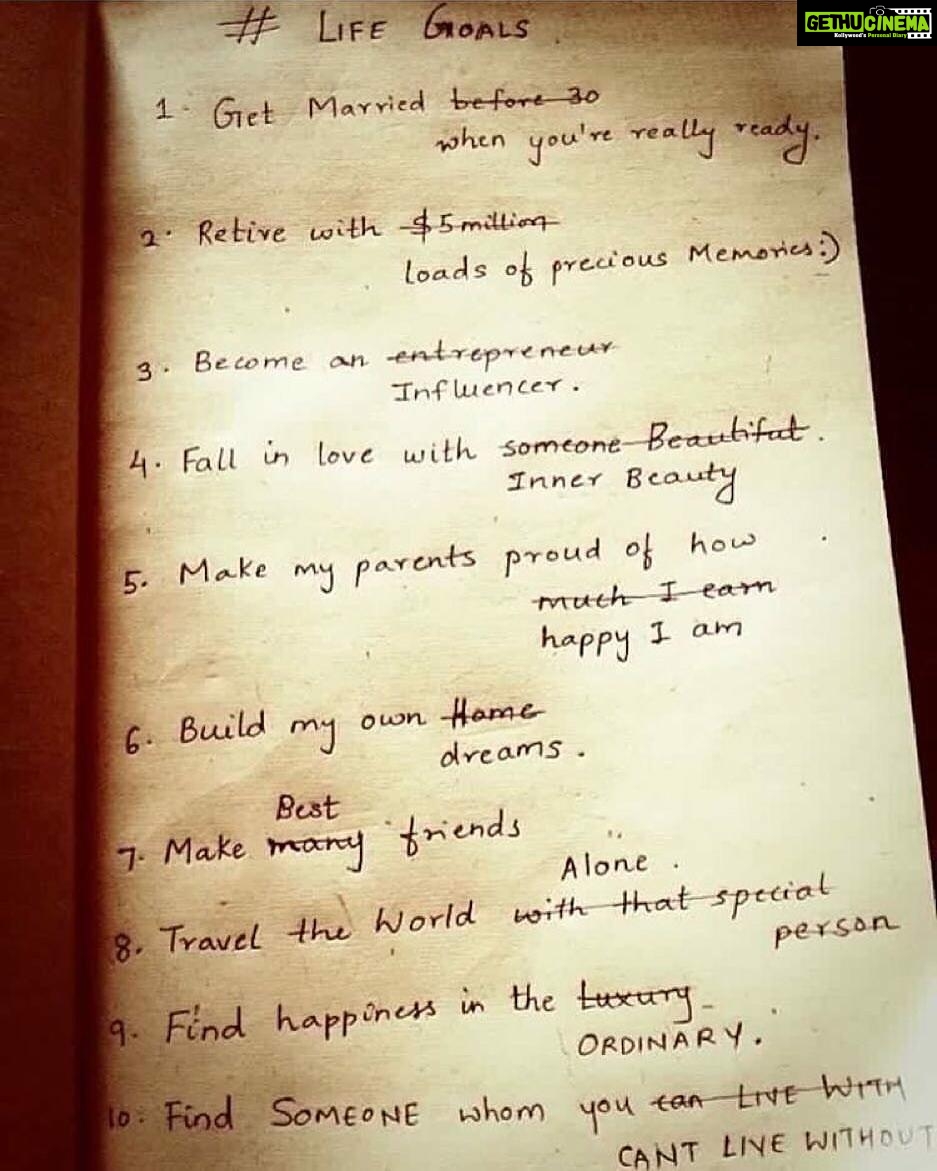 GETHUCINEMA
Kollywood's Personal Diary
# LIFE GOALS
1. Get Married before 30
when you're really ready.
2. Retire with $5 million
loads of precious Memories:)
3. Become an entrepreneur
Influencer.
4. Fall in love with someone Beautiful.
Inner Beauty
5. Make my parents proud of how
much I earn
happy I am
6. Build my own Home
dreams.
Best
7. Make many friends
Alone.
8. Travel the World with that special
person
9. Find happiness in the Luxury
ORDINARY.
10. Find SOMEONE whom you can LIVE WITH
CANT LIVE WITHOUT